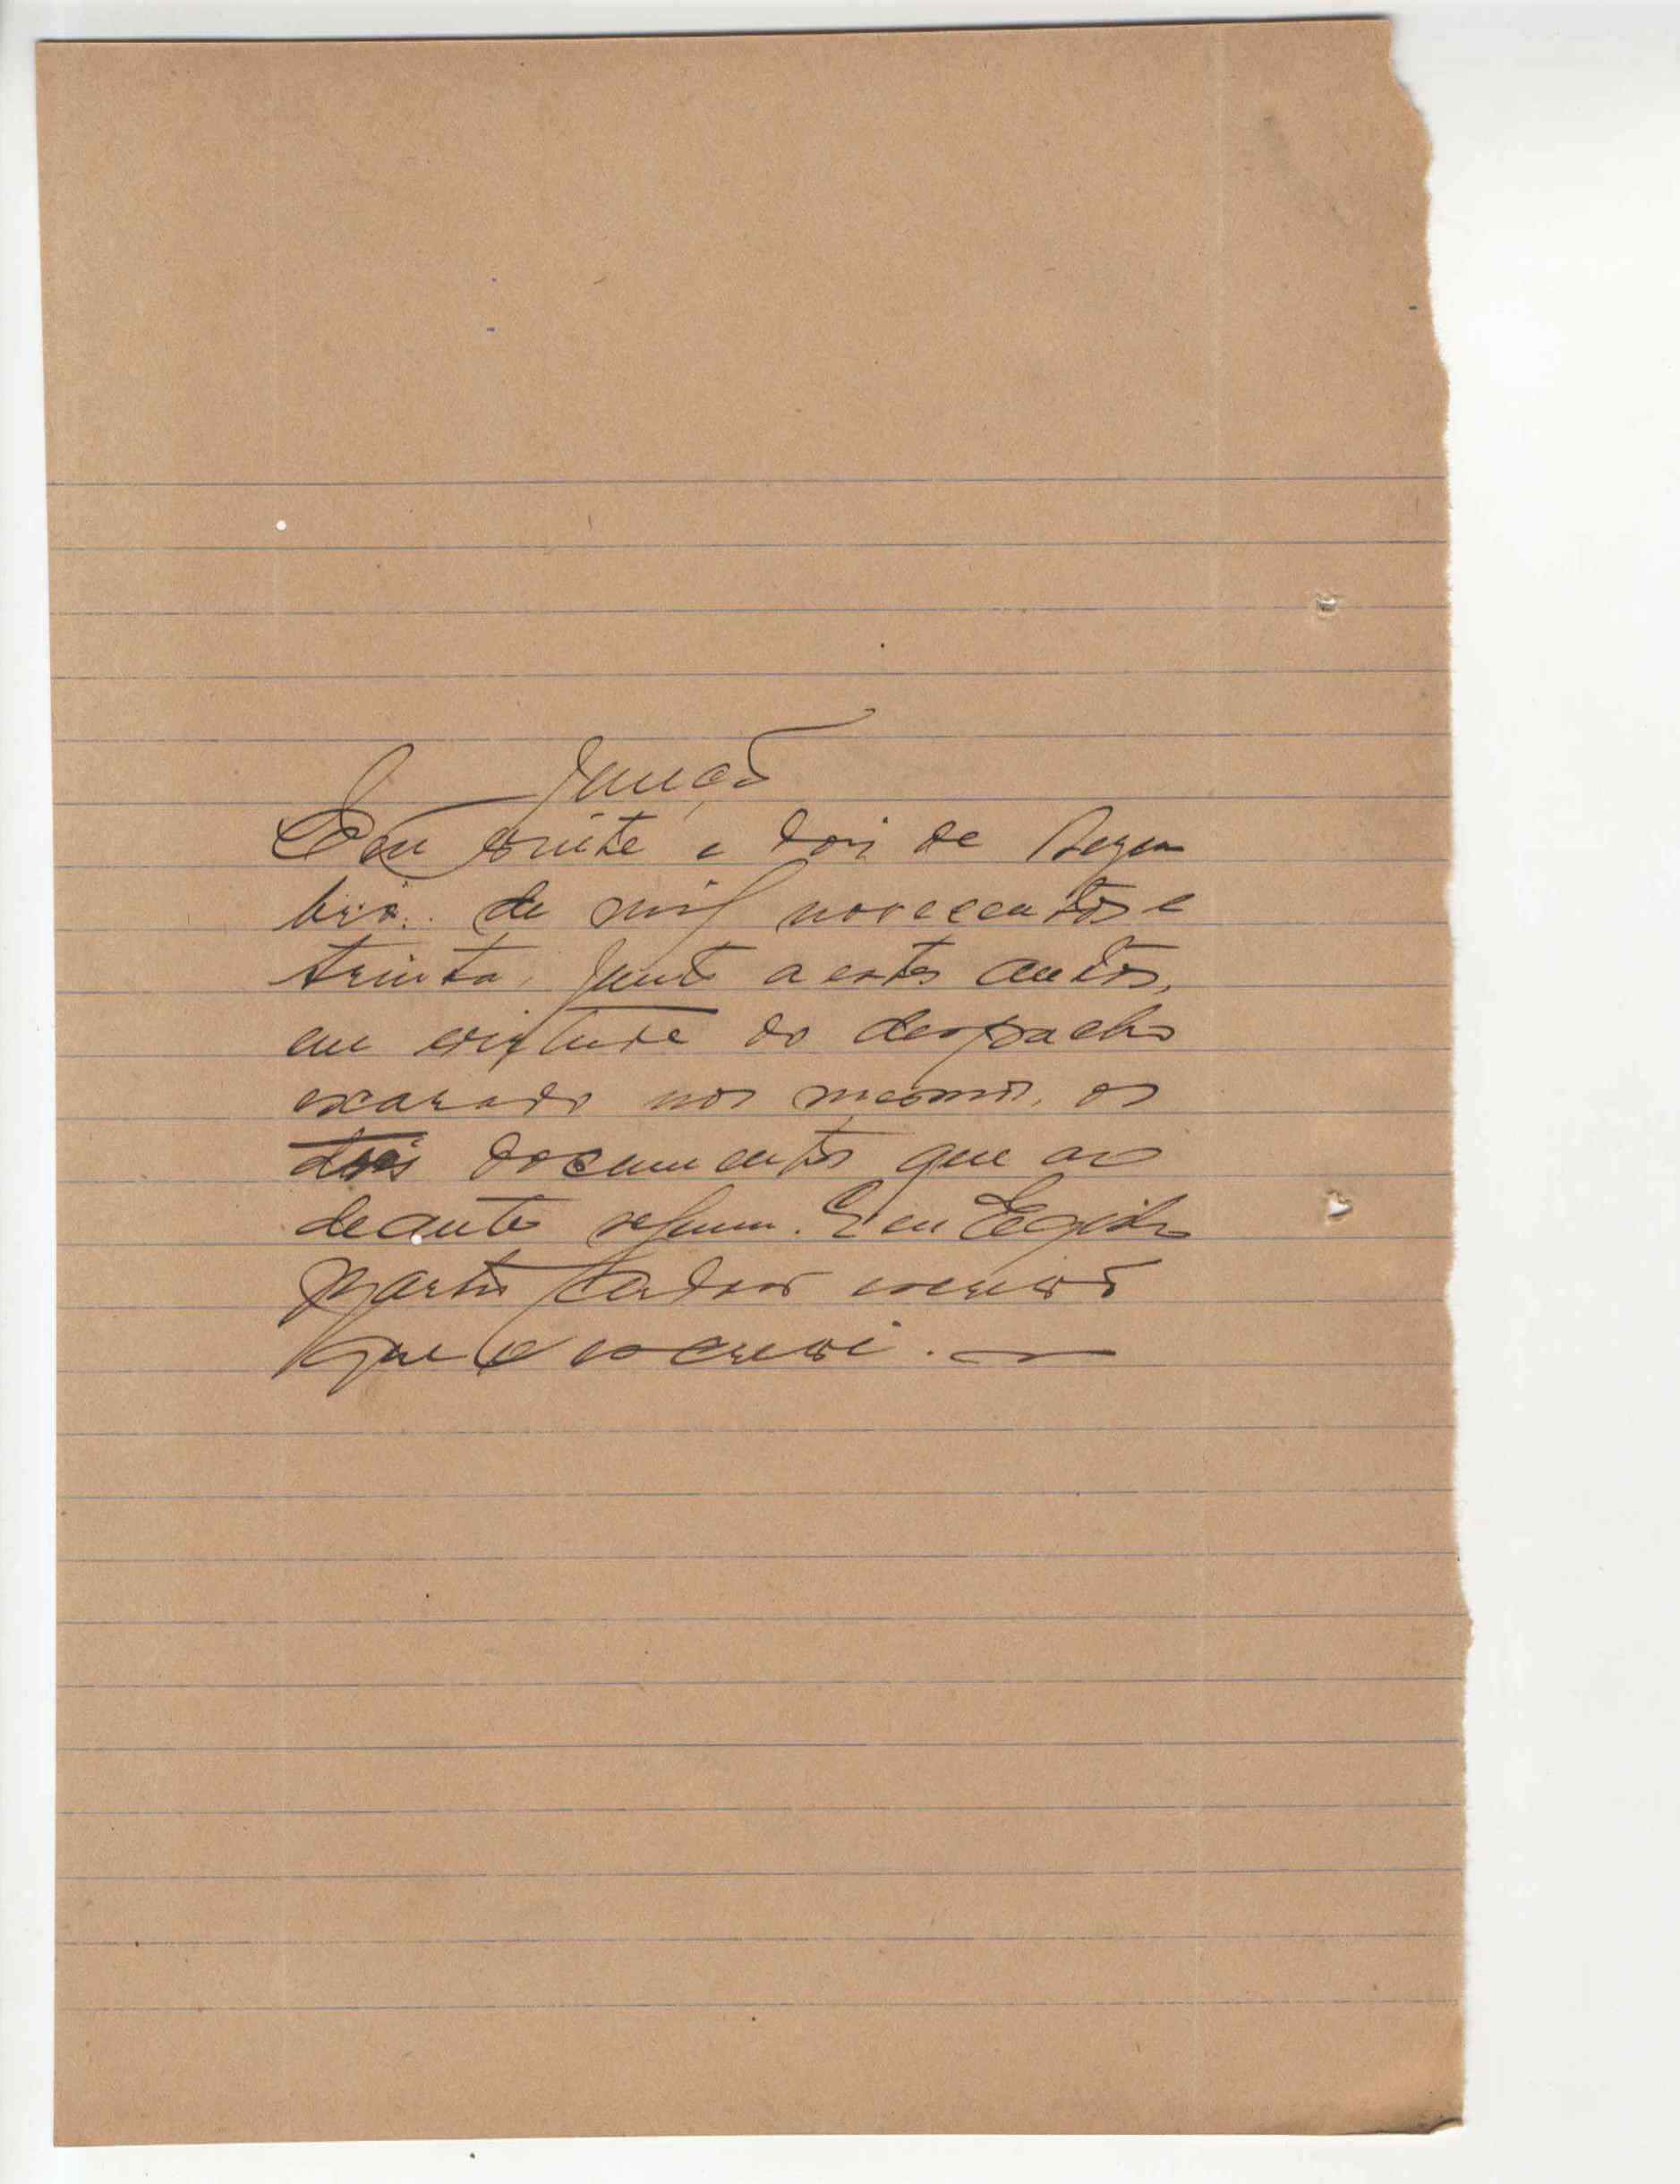 Junção
Em vinte e dois de Dezem
bro de mil novecentos e
trinta, junto a estes autos,
em virtude do despacho
exarado nos mesmos, os
dois documentos que ao
deante seguem. Eu Egidio
Martins escrivão
que o escrevi.